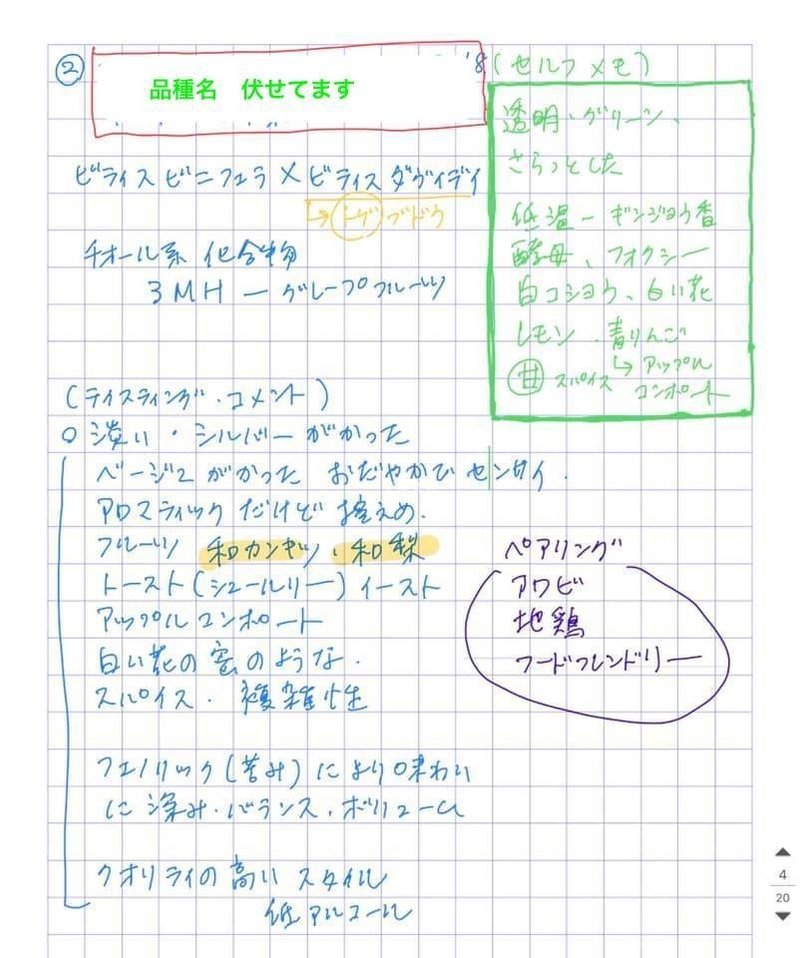 ②
'18
品種名 伏せてます
(セルフメモ)
透明・グリーン、
さらっとした
低温ーギンジョウ香
酵母、フォクシー
白コショウ、白い花
レモン、青りんご
甘 スパイス ↳ アップル
コンポート
ビティス ビニフェラ × ビティス ダヴィディ
→ トゲ ブドウ
チオール系 化合物
3MH ー グレープフルーツ
(テイスティング・コメント)
○ 淡い・シルバーがかった
ベージュがかった おだやかで センサイ.
アロマティック だけど 控えめ.
フルーツ 和カンキツ・和梨
トースト(シュールリー) イースト
アップルコンポート
白い花の蜜のような.
スパイス. 複雑性
フェノリック(苦み)により味わい
に深み・バランス・ボリューム
クオリティの高い スタイル
低アルコール
ペアリング
アワビ
地鶏
フードフレンドリー
4
20